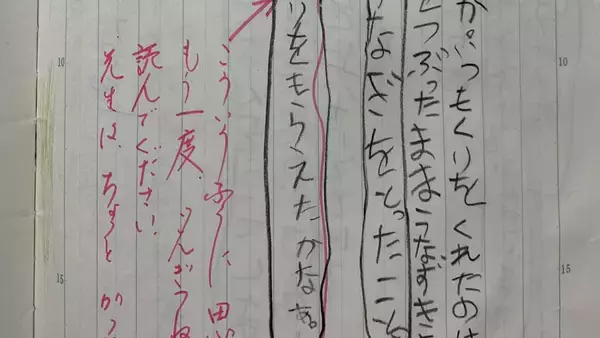 が、いつもくりをくれたのは
をつぶったままうなずきま
たなざをとったこと
りをもらえたかなあ。
こういうふうに、思
もう一度、ごんぎつね
読んでください。
先生は、ちょっと がっ
10
10
15
15